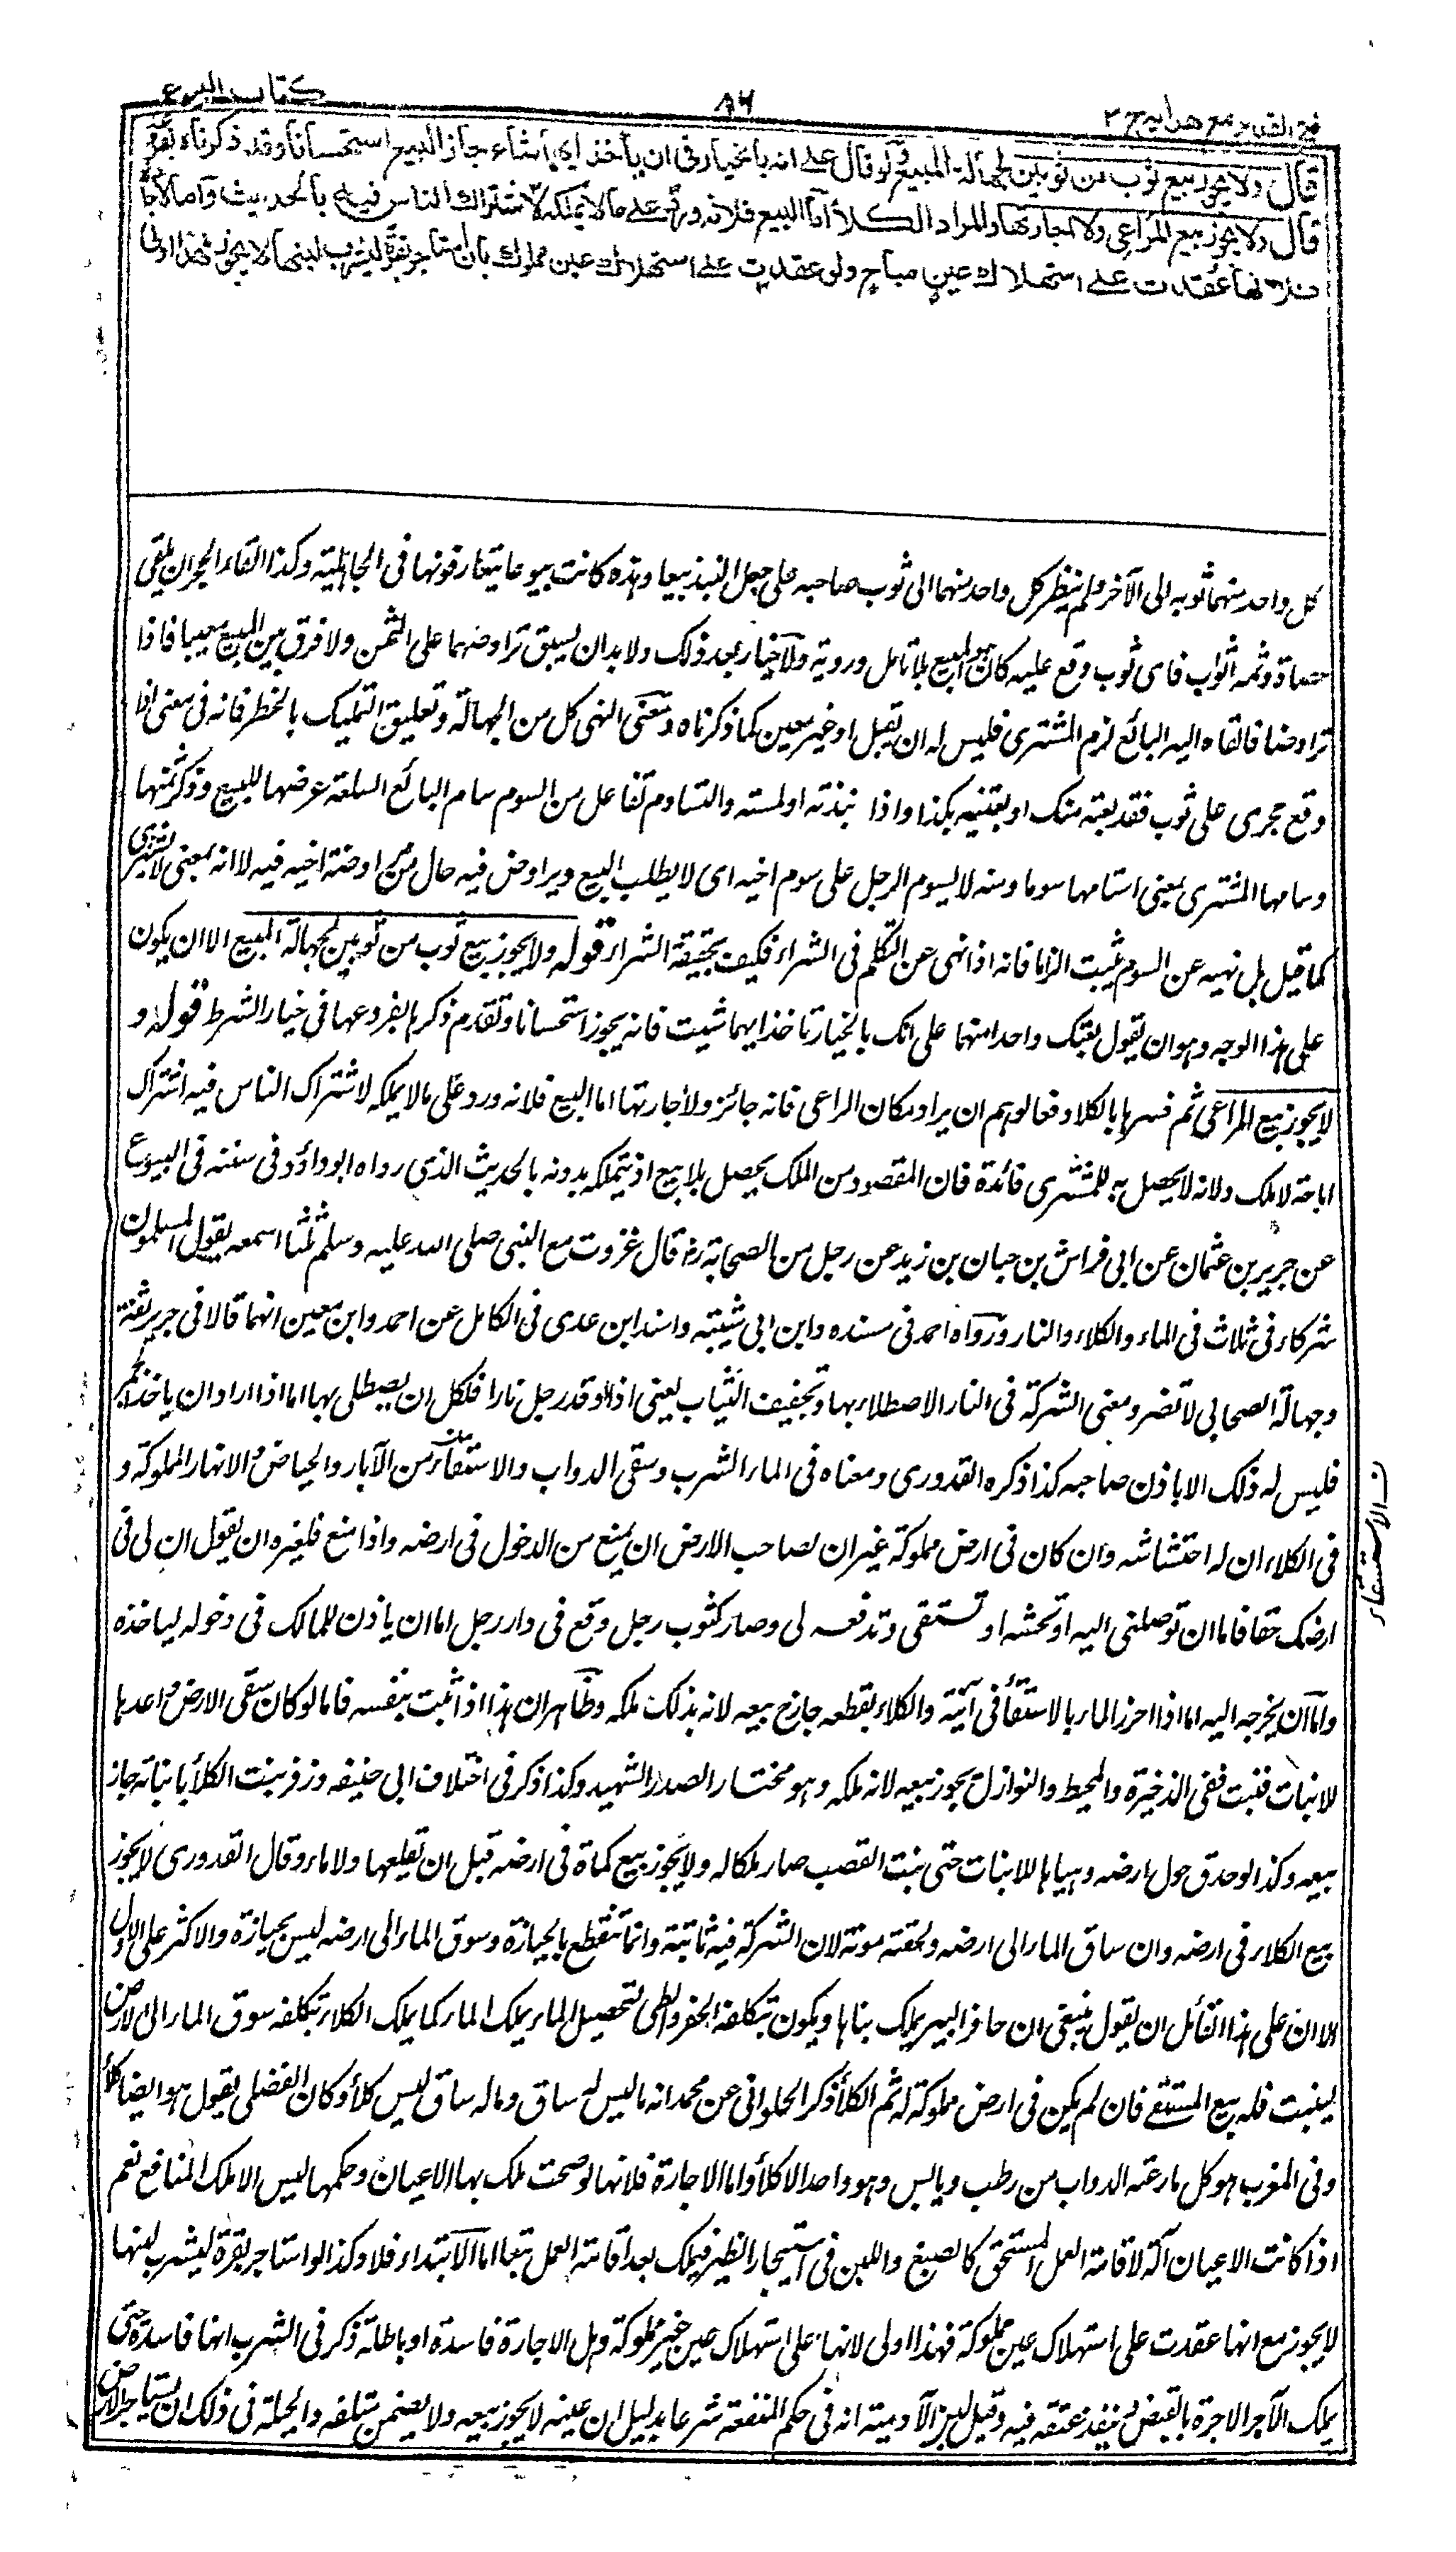 فتح القدير مع هدايه ج ٣ ٨٦ كتاب البيوع
قال ولا يجوز بيع ثوب من ثوبين لجهالة المبيع ولو قال على انه بالخيار فى ان يأخذ ايهما شاء جاز البيع استحسانا وقد ذكرناه بفروعه
قال ولا يجوز بيع المراعى ولا اجارتها والمراد الكلأ اما البيع فلانه ورد على ما لا يملكه لاشتراك الناس فيه بالحديث واما الاجارة
فلانها عقدت على استهلاك عين مباح ولو عقدت على استهلاك عين مملوك بان استاجر بقرة ليشرب لبنها لا يجوز فهذا اولى
كل واحد منهما ثوبه الى الآخر ولم ينظر كل واحد منهما الى ثوب صاحبه على جعل النبذ بيعا وهذه كانت بيوعا يتعارفونها فى الجاهلية وكذا القاء الحجر ان يلقى
حصاة وثمه اثواب فاى ثوب وقع عليه كان هو المبيع بلا تامل وروية ولا خيار بعد ذلك ولا بد ان يسبق تراوضهما على الثمن ولا فرق بين المبيع معيبا فاذا
تراوضا فالقاه اليه البائع لزم المشترى فليس له ان يقبل او غير معين كما ذكرناه ومعنى النهى كل من الجهالة وتعليق التمليك بالخطر فانه فى معنى اذا
وقع حجرى على ثوب فقد بعته منك او بعتنيه بكذا واذا نبذته او لمسته والتساوم تفاعل من السوم سام البائع السلعة عرضها للبيع وذكر ثمنها
وسامها المشترى بمعنى استامها سوما ومنه لا يسوم الرجل على سوم اخيه اى لا يطلب البيع ويراوض فيه حال مراوضة اخيه فيه لا انه بمعنى لا يشترى
كما قيل بل نهيه عن السوم يثبت الزاما فانه اذا نهى عن التكلم فى الشراء فكيف بحقيقة الشراء قوله ولا يجوز بيع ثوب من ثوبين لجهالة المبيع الا ان يكون
على هذا الوجه وهو ان يقول بعتك واحدا منهما على انك بالخيار تاخذ ايهما شيت فانه يجوز استحسانا وتقدم ذكرها بفروعها فى خيار الشرط قوله و
لا يجوز بيع المراعى ثم فسرها بالكلاء دفعا لوهم ان يراد مكان الراعى فانه جائز ولا اجارتها اما البيع فلانه ورد على مالا يملكه لاشتراك الناس فيه اشتراك
اباحة لا ملك ولانه لا يحصل به للمشترى فائدة فان المقصود من الملك يحصل بلا بيع اذ يتملكه بدونه بالحديث الذى رواه ابو داؤد فى سننه فى البيوع
عن جرير بن عثمان عن ابى فراش بن حبان بن زيد عن رجل من الصحابة رض قال غزوت مع النبى صلى الله عليه وسلم ثلثا اسمعه يقول المسلمون
شركاء فى ثلاث فى الماء والكلاء والنار ورواه احمد فى مسنده وابن ابى شيبة واسند ابن عدى فى الكامل عن احمد وابن معين انهما قالا فى جرير ثقة
وجهالة الصحابى لا تضر ومعنى الشركة فى النار الاصطلاء بها وتجفيف الثياب يعنى اذا اوقد رجل نارا فلكل ان يصطلى بها اما اذا اراد ان ياخذ الجمر
فليس له ذلك الا باذن صاحبه كذا ذكره القدورى ومعناه فى الماء الشرب وسقى الدواب والاستقاء من الآبار والحياض والانهار المملوكة و
فى الكلاء ان له احتشاشه وان كان فى ارض مملوكة غير ان لصاحب الارض ان يمنع من الدخول فى ارضه واذا منع فلغيره ان يقول ان لى فى
ارضك حقا فاما ان توصلنى اليه او تحشه او تستقى وتدفعه لى وصار كثوب رجل وقع فى دار رجل اما ان ياذن للمالك فى دخوله لياخذه
واما ان يخرجه اليه اما اذا احرز الماء بالاستقاء فى آنية والكلاء بقطعه جاز ح بيعه لانه بذلك ملكه وظاهر ان هذا اذا نبت بنفسه فاما لو كان سقى الارض واعدها
للانبات فنبت ففى الذخيرة والمحيط والنوازل يجوز بيعه لانه ملكه وهو مختار الصدر الشهيد وكذا ذكر فى اختلاف ابى حنيفه وزفر ينبت الكلأ بانباته جاز
بيعه وكذا لو حدق حول ارضه وهياها للانبات حتى نبت القصب صار ملكا له ولا يجوز بيع كماة فى ارضه قبل ان تقلعها ولا ماء وقال القدورى لا يجوز
بيع الكلاء فى ارضه وان ساق الماء الى ارضه ولحقته مونة لان الشركة فيه ثابتة وانما تنقطع بالحيازة وسوق الماء الى ارضه ليس بحيازة والاكثر على الاول
الا ان على هذا القائل ان يقول ينبغى ان حافر البير يملك بناها ويكون بتكلفه الحفر والطى لتحصيل الماء يملك الماء كما يملك الكلاء بتكلفه سوق الماء الى الارض
لينبت فله بيع المستقى فان لم يكن فى ارض مملوكة له ثم الكلأ ذكر الحلوانى عن محمد انه ماليس له ساق وماله ساق ليس كلأ وكان الفضلى يقول هو ايضا كلأ
وفى المغرب هو كل ما رعته الدواب من رطب ويابس وهو واحد الاكلأ واما الاجارة فلانها لو صحت ملك بها الاعيان وحكمها ليس الا ملك المنافع نعم
اذا كانت الاعيان آلة لاقامة العمل المستحق كالصبغ واللبن فى استيجار الظير فيملك بعد اقامة العمل تبعا اما الابتداء فلا وكذا لو استاجر بقرة ليشرب لبنها
لا يجوز مع انها عقدت على استهلاك عين مملوكة فهذا اولى لانها على استهلاك عين غير مملوكة وهل الاجارة فاسدة او باطلة ذكر فى الشرب انها فاسدة حتى
يملك الآجر الاجرة بالقبض وينفذ عتقه فيه وقيل لبن الآدمية انه فى حكم المنفعة شرعا بدليل ان عينه لا يجوز بيعه ولا يضمن متلفه والحيلة فى ذلك ان يستاجر الارض
ن الاستقاء